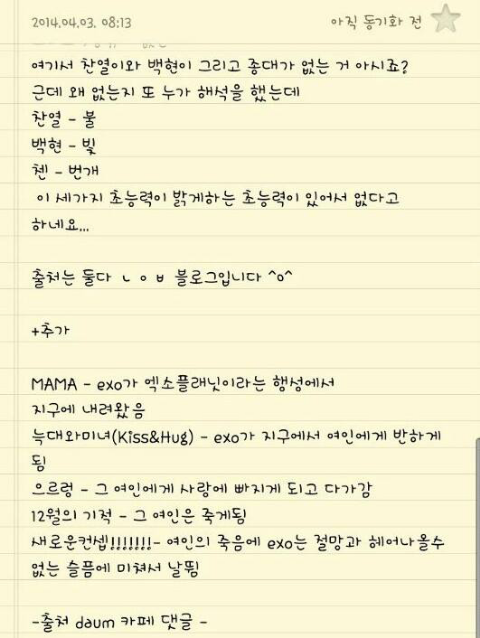 2014.04.03. 08:13
아직 동기화 전
여기서 찬열이와 백현이 그리고 종대가 없는 거 아시죠?
근데 왜 없는지 또 누가 해석을 했는데
찬열 - 불
백현 - 빛
첸 - 번개
이 세가지 초능력이 밝게하는 초능력이 있어서 없다고
하네요...
출처는 둘다 ㄴㅇㅂ 블로그입니다 ^o^
+추가
MAMA - exo가 엑소플래닛이라는 행성에서
지구에 내려왔음
늑대와미녀(Kiss&Hug) - exo가 지구에서 여인에게 반하게
됨
으르렁 - 그 여인에게 사랑에 빠지게 되고 다가감
12월의 기적 - 그 여인은 죽게됨
새로운컨셉!!!!!!!- 여인의 죽음에 exo는 절망과 헤어나올수
없는 슬픔에 미쳐서 날뜀
-출처 daum 카페 댓글 -